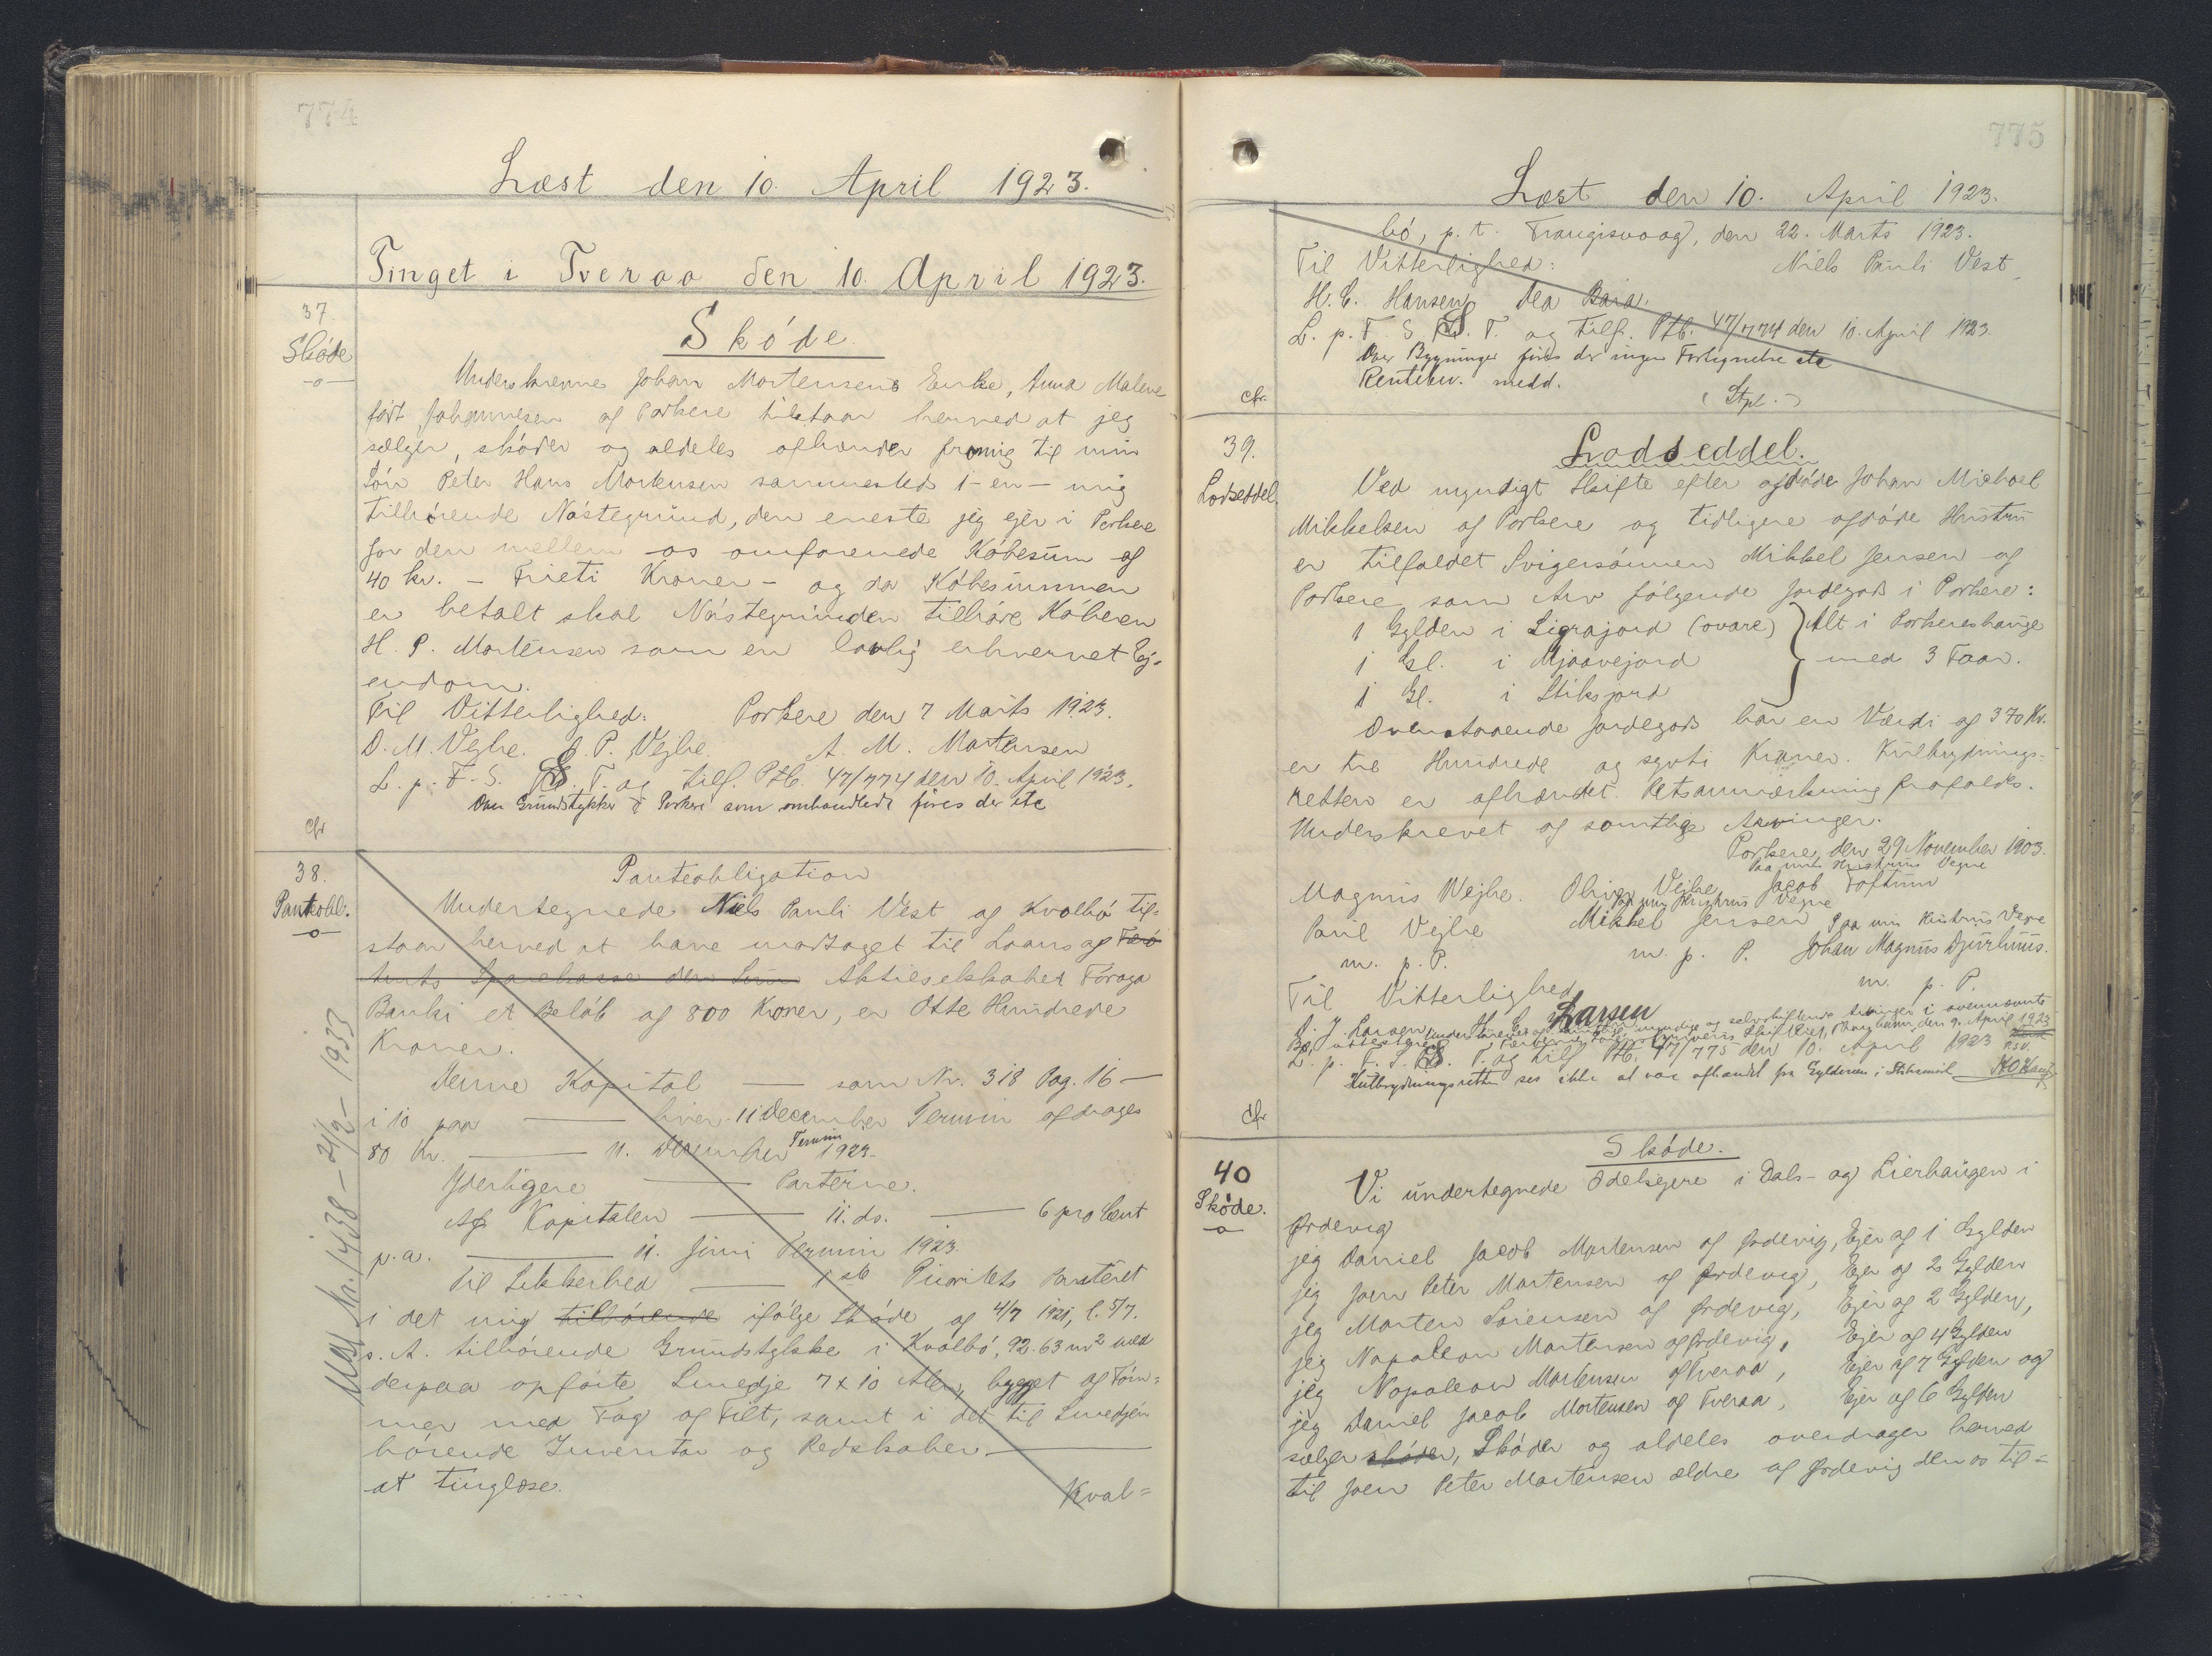 774
Læst den 10. April 1923.
Tinget i Tveraa den 10. April 1923.
37.
Skøde
Skøde.
Underskrevne Johan Mortensens Enke, Anna Malene
født Johannesen af Porkere tilstaar herved at jeg
sælger, skøder og aldeles afhænder fra mig til min
Søn Peter Hans Mortensen sammesteds 1 - en - mig
tilhørende Nøstegrund, den eneste jeg ejer i Porkere
for den mellem os omforenede Købesum af
40 kr. - Firieti Kroner - og da Købesummen
er betalt skal Nøstegrunden tilhøre Køberen
H. P. Mortensen som en lovlig erhvervet Ej-
endom.
Til Vitterlighed: Porkere den 7 Marts 1923.
D. M. Vejhe. J. P. Vejhe. A. M. Mortensen
L. p. T. S. T. og tilf. Ptb. 47/774 den 10. April 1923.
Over Grundstykker i Porkeri som omhandlede føres der etc
cfr
38.
Panteobl.
Panteobligation
Undertegnede Niels Pauli Vest af Kvalbø til-
staar herved at have modtaget til Laans af Færø
Amts Sparekasse den Sum Aktieselskabet Føroya
Banki et Beløb af 800 Kroner, er Otte Hundrede
Kroner.
Denne Kapital — som Nr. 318 Pag. 16 —
i 10 paa — hver 11 December Termin afdrages
80 Kr. — 11. December Termin 1923.
Yderligere — Parterne.
Af Kapitalen — 11. ds. — 6 pro Cent
p.a. — 11. Juni Termin 1923.
Til Sikkerhed — 1ste Prioritets Panteret
i det mig tilhørende ifølge Skøde af 4/7 1921, l. 5/7.
s. A. tilhørende Grundstykke i Kvalbø, 92.63 m² med
derpaa opførte Smedje 7 x 10 Alen, bygget af Tøm-
mer med Tag af Filt, samt i det til Smedjen
hørende Inventar og Redskaber —
at tinglæse.
Kval=
Nr. 1438 - 21/2 - 1933
775
Læst den 10. April 1923.
bø, p. t. Trangisvaag, den 22. Marts 1923.
Til Vitterlighed: Niels Pauli Vest
H. C. Hansen. Dea
L. p. T. S. T. og tilf. Ptb. 47/774 den 10. April 1923.
Over Bygninger føres der ingen Fortegnelse etc
Rentebev. medd.
(Stpl.)
cfr.
39.
Lodseddel
Lodseddel.
Ved myndigt Skifte efter afdøde Johan Michael
Mikkelsen af Porkere og tidligere afdøde Hustru
er tilfaldet Svigersønnen Mikkel Jensen af
Porkere som Arv følgende Jordegods i Porkere:
1 Gylden i Ligrajord (ovare) } Alt i Porkereshauge
1 Gl. i Mjaavejord } med 3 Faar.
1 Gl. i Stiksjord
Ovenstaaende Jordegods har en Værdi af 370 Kr.
er tre Hundrede og syvti Kroner. Kulbrydnings-
retten er afhændet. Retsanmærkning frafaldes.
Underskrevet af samtlige Arvinger.
Porkere, den 29 November 1903.
Paa min Hustrus Vegne
Magnus Wejhe. Oliver Vejhe Jacob Toftum
Paa min Hustrus Vegne
Poul Vejhe Mikkel Jensen Paa min Hustrus Vegne
m. p. P. m. p. P. Johan Magnus Djurhuus.
Til Vitterlighed m. p. P.
J. J. Larsen, Larsen
L. p. T. S. T. og tilf. Ptb. 47/775 den 10. April 1923
Kulbrydningsretten ses ikke at være afhændet fra Gyldenen i
cfr
40
Skøde.
Skøde.
Vi undertegnede Odelsejere i Dals- og Lierhaugen i
Ørdevig
jeg Daniel Jacob Mortensen af Ørdevig, Ejer af 1 Gylden
jeg Joen Peter Mortensen af Ørdevig, Ejer af 2 Gylden
jeg Morten Sørensen af Ørdevig, Ejer af 2 Gylden,
jeg Napoleon Mortensen af Ørdevig, Ejer af 4 Gylden
jeg Napoleon Mortensen af Tveraa, Ejer af 7 Gylden og
jeg Daniel Jacob Mortensen af Tveraa, Ejer af 6 Gylden
sælger skøder, Skøder og aldeles overdrager herved
til Joen Peter Mortensen ældre af Ørdevig den os til=